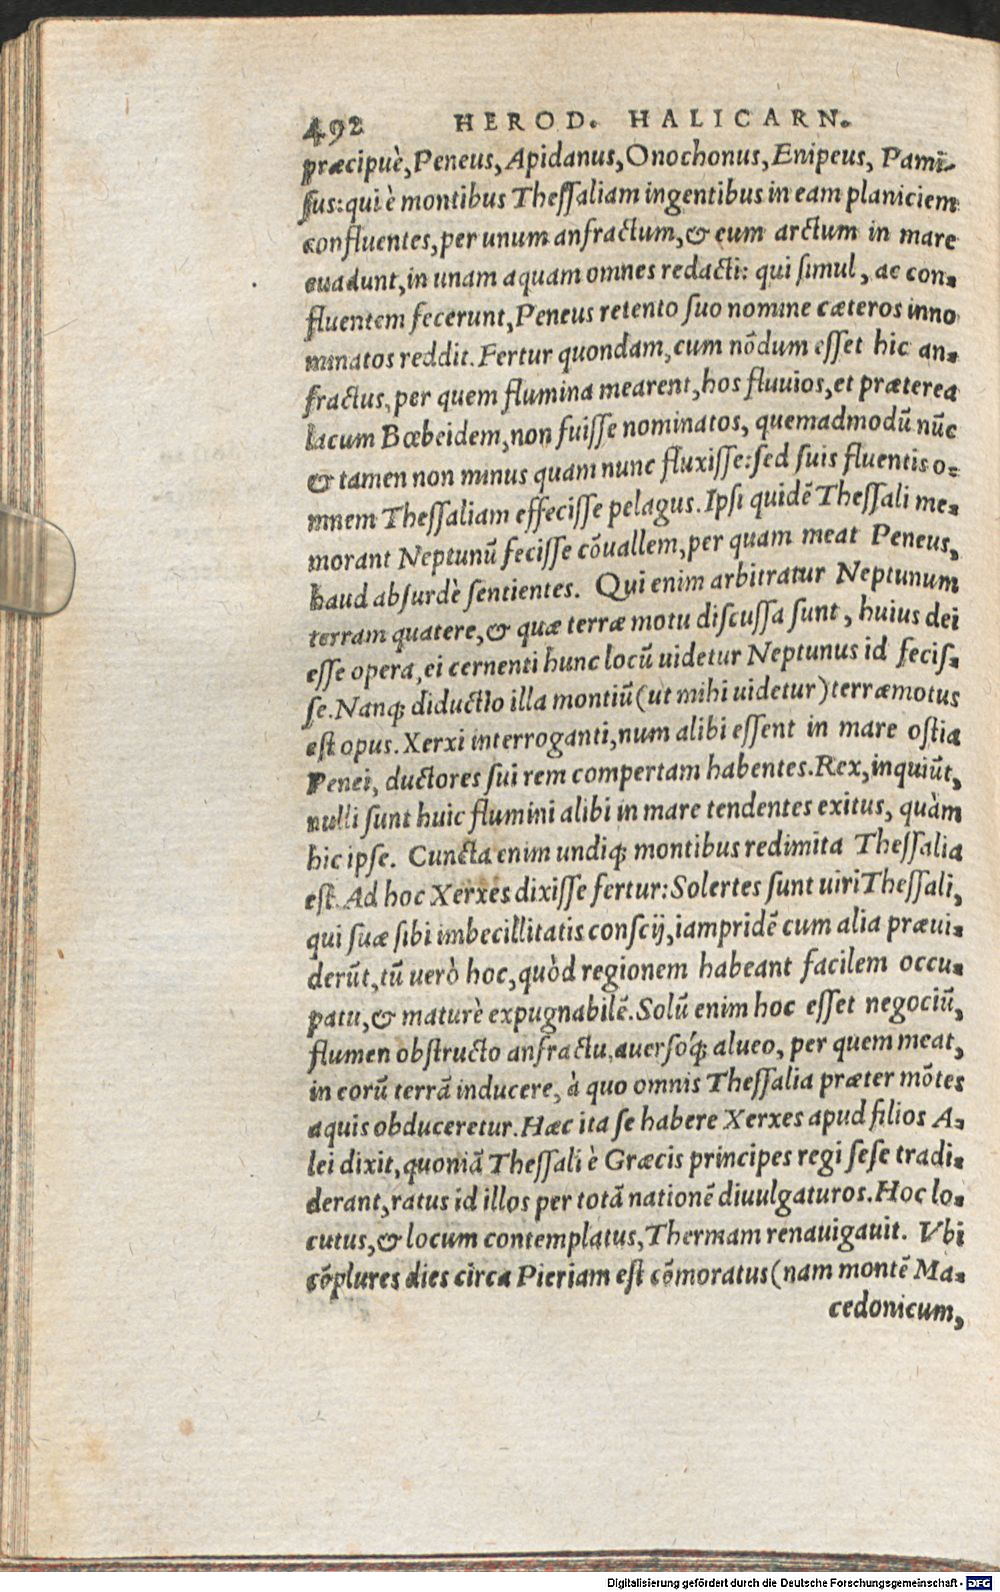 492 HEROD. HALICARN.
præcipuè, Peneus, Apidanus, Onochonus, Enipeus, Pamī-
sus: qui è montibus Thessaliam ingentibus in eam planiciem
confluentes, per unum anfractum, & eum arctum in mare
euadunt, in unam aquam omnes redacti: qui simul, ac con-
fluentem fecerunt, Peneus retento suo nomine cæteros inno
minatos reddit. Fertur quondam, cum nōdum esset hic an-
fractus, per quem flumina mearent, hos fluuios, et præterea
lacum Bœbeidem, non fuisse nominatos, quemadmodū nūc
& tamen non minus quam nunc fluxisse: sed suis fluentis o-
mnem Thessaliam effecisse pelagus. Ipsi quidē Thessali me-
morant Neptunū fecisse cōuallem, per quam meat Peneus,
haud absurdè sentientes. Qui enim arbitratur Neptunum
terram quatere, & quæ terræ motu discussa sunt, huius dei
esse opera, ei cernenti hunc locū uidetur Neptunus id fecis-
se. Nanq; diductio illa montiū (ut mihi uidetur) terræmotus
est opus. Xerxi interroganti, num alibi essent in mare ostia
Penei, ductores sui rem compertam habentes. Rex, inquiūt,
nulli sunt huic flumini alibi in mare tendentes exitus, quàm
hic ipse. Cuncta enim undiq; montibus redimita Thessalia
est. Ad hoc Xerxes dixisse fertur: Solertes sunt uiri Thessali,
qui suæ sibi imbecillitatis conscij, iampridē cum alia præui-
derūt, tū uerò hoc, quòd regionem habeant facilem occu-
patu, & maturè expugnabilē. Solū enim hoc esset negociū,
flumen obstructo anfractu, auersóq; alueo, per quem meat,
in eorū terrā inducere, à quo omnis Thessalia præter mōtes
aquis obduceretur. Hæc ita se habere Xerxes apud filios A-
lei dixit, quoniā Thessali è Græcis principes regi sese tradi-
derant, ratus id illos per totā nationē diuulgaturos. Hoc lo-
cutus, & locum contemplatus, Thermam renauigauit. Vbi
cōplures dies circa Pieriam est cōmoratus (nam montē Ma-
cedonicum,
Digitalisierung gefördert durch die Deutsche Forschungsgemeinschaft - DFG